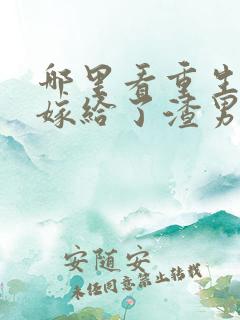 那里看重生
嫁给了渣男
安随安
未经同意禁止转载